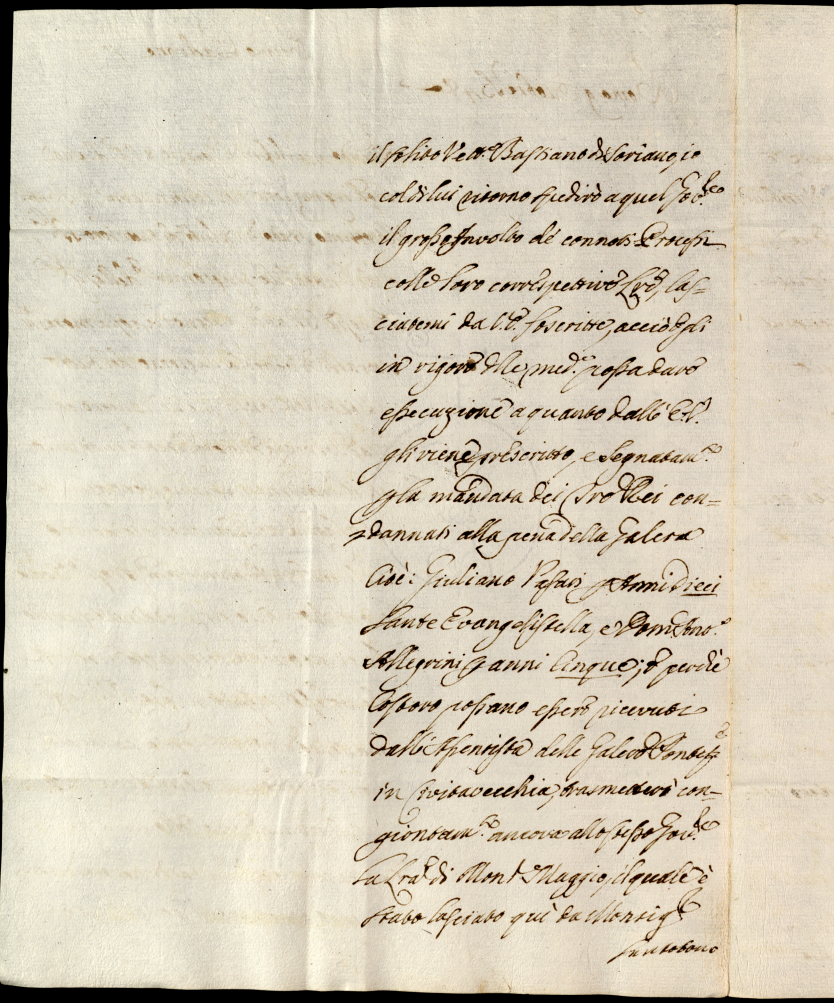 il solito Vett.e Bastiano di Soriano, io
col di lui ritorno spedirò a quel Gov.re
il grosso Involto de' connoti Processi
colle loro correspettive Lrē, las-
ciatemi da V.E. soscritte, acciò egli
in vigore delle med.e possa dare
essecuzione a quanto dall' E.V.
gli viene prescritto, e segnatam.te
p la mandata dei tre Rei con-
dannati alla pena della Galera
cioè: Giuliano Pasari p Anni Dieci
Sante Evangelistella, e Dom.Ant.o
Allegrini p anni Cinque; e perche
costoro possano essere ricevuti
dall' Assentista delle Galere Pontef.e
in Civitavecchia, trasmetterò con-
giontam.te ancora allo stesso Gov.re
la Lrā di Mons.r Maggio, il quale è
stato lasciato quì da Monsig.r